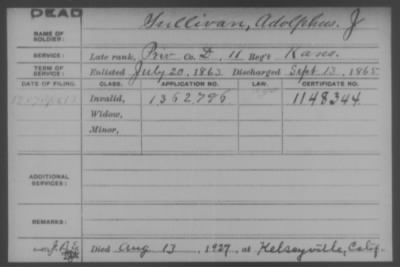 DEAD
NAME OF SOLDIER: Sullivan, Adolphus. J
SERVICE: Late rank, Priv Co. D, 11 Reg't Kans.
TERM OF SERVICE: Enlisted July 20, 1863 Discharged Sept 13, 1865
DATE OF FILING. CLASS. APPLICATION NO. LAW. CERTIFICATE NO.
Invalid, 1362796 1148344
Widow,
Minor,
ADDITIONAL SERVICES:
REMARKS:
Died Aug 13, 1927, at Kelseyville, Calif.